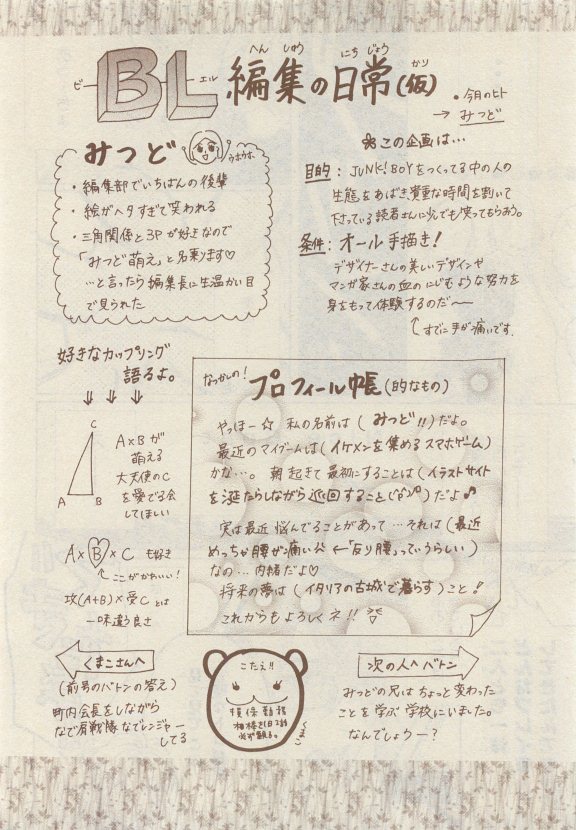 BL編集の日常(仮)
ビー エル へん しゅう にち じょう かり
・今月のヒト
→ みつど
みつど
ウホウホ
・編集部でいちばんの後輩
・絵がヘタすぎて笑われる
・三角関係と3Pが好きなので
「みつど萌え」と名乗ります♡
…と言ったら編集長に生温かい目
で見られた
❀この企画は…
目的: JUNK!BOYをつくってる中の人の
生態をあばき貴重な時間を割いて
下さっている読者さんに少しでも笑ってもらおう。
条件: オール手描き!
デザイナーさんの美しいデザインや
マンガ家さんの血のにじむような努力を
身をもって体験するのだ〜
すでに手が痛いです。
好きなカップリング
語るよ。
⇓ ⇓ ⇓
C
A B
A×Bが
萌える
大天使のC
を愛でる会
してほしい
A×B×C も好き
ここがかわいい!
攻(A+B)×受C とは
一味違う良さ
なつかしの!
プロフィール帳(的なもの)
やっほー☆ 私の名前は(みつど!!)だよ。
最近のマイブームは(イケメンを集めるスマホゲーム)
かな…。朝起きて最初にすることは(イラストサイト
を涎たらしながら巡回すること)だよ♪
実は最近悩んでることがあって…それは(最近
めっちゃ腰が痛い ←「反り腰」っていうらしい)
なの…内緒だよ♡
将来の夢は(イタリアの古城で暮らす)こと!
これからもよろしくネ!!
くまこさんへ
(前号のバトンの答え)
町内会長をしながら
なで肩戦隊なでレンジャー
してる
こたえ!!
くまこ
次の人へバトン
みつどの兄はちょっと変わった
ことを学ぶ学校にいました。
なんでしょうー?